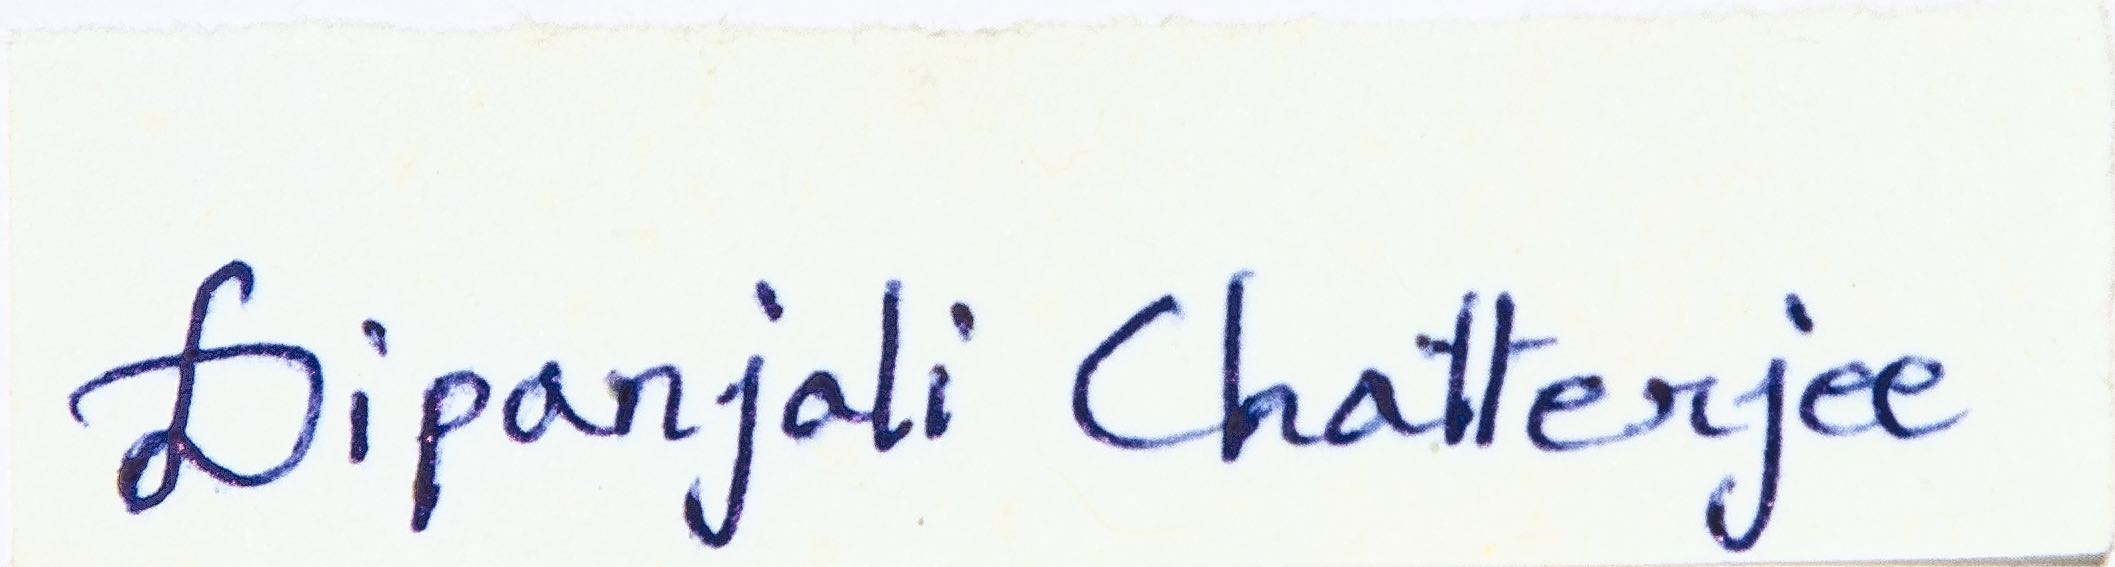 Dipanjali Chatterjee